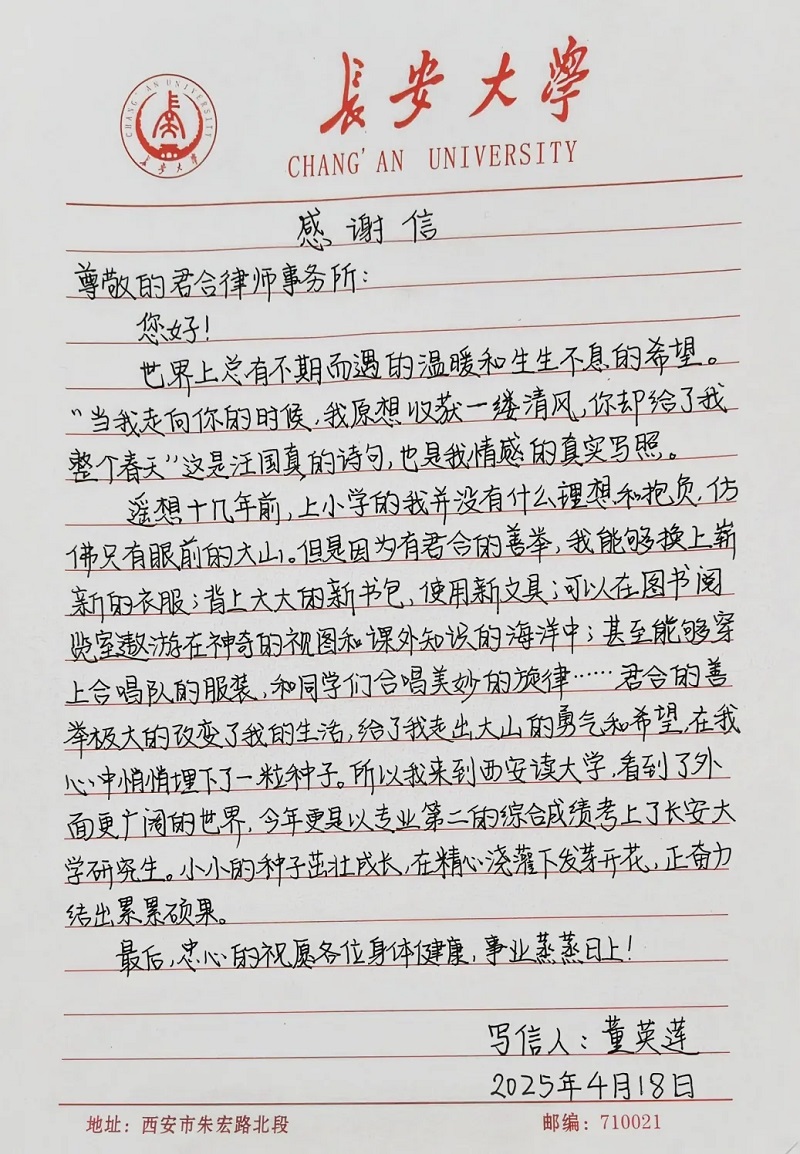 CHANG'AN UNIVERSITY
长安大学
長安大學
CHANG'AN UNIVERSITY
感谢信
尊敬的君合律师事务所：
您好！
世界上总有不期而遇的温暖和生生不息的希望。
“当我走向你的时候，我原想收获一缕清风，你却给了我
整个春天”这是汪国真的诗句，也是我情感的真实写照。
遥想十几年前，上小学的我并没有什么理想和抱负，仿
佛只有眼前的大山。但是因为有君合的善举，我能够换上崭
新的衣服；背上大大的新书包，使用新文具；可以在图书阅
览室遨游在神奇的视图和课外知识的海洋中；甚至能够穿
上合唱队的服装，和同学们合唱美妙的旋律……君合的善
举极大的改变了我的生活，给了我走出大山的勇气和希望，在我
心中悄悄埋下了一粒种子。所以我来到西安读大学，看到了外
面更广阔的世界，今年更是以专业第二的综合成绩考上了长安大
学研究生。小小的种子茁壮成长，在精心浇灌下发芽开花，正奋力
结出累累硕果。
最后，忠心的祝愿各位身体健康，事业蒸蒸日上！
写信人：董英莲
2025年4月18日
地址：西安市朱宏路北段
邮编：710021